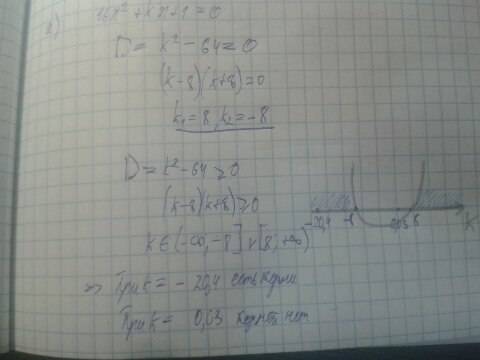 16x² + kx + 1 = 0
D = k² - 64 = 0
(k-8)(k+8) = 0
k₁ = 8, k₂ = -8
D = k² - 64 ≥ 0
(k-8)(k+8) ≥ 0
-20,4 -8 0,03 8 k
k ∈ (-∞, -8] ∨ [8, +∞)
=> При k = - 20,4 есть корни
При k = 0,03 корней нет